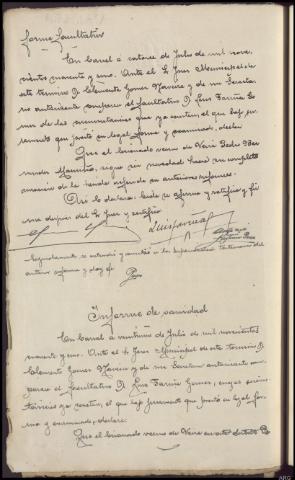 Forme Facultativo
En Carral á catorce de Julio de mil nove-
cientos noventa y uno. Ante el Sr Juez Municipal de
este termino D. Clemente Gomez Naveira y de mi Secretar-
rio autorizante comparecio el facultativo D. Luis Fariña Go-
mez de las circunstancias que ya constan, el que bajo ju-
ramento que prestó en legal forma y examinado, declara:
Que el lesionado vecino de Veira Pedro
sigue sin novedad hacia su completa
curacion de la herida referida en anteriores informes.
Asi lo declara, leida se afirma y ratifica y fir-
ma despues del Sr Juez y certifico
Luis Fariña
Seguidamente se extendió y remitió a la superioridad testimonio del
anterior informe y doy fé
Informe de sanidad
En Carral á veintiuno de Julio de mil novecientos
noventa y uno. Ante el Sr Juez Municipal de este termino D.
Clemente Gomez Naveira y de mi Secretario autorizante com-
pareció el facultativo D. Luis Fariña Gomez, cuyas circuns-
tancias ya constan, el que bajo juramento que prestó en legal for-
ma y examinado, declara:
Que el lesionado vecino de Veira
ARG